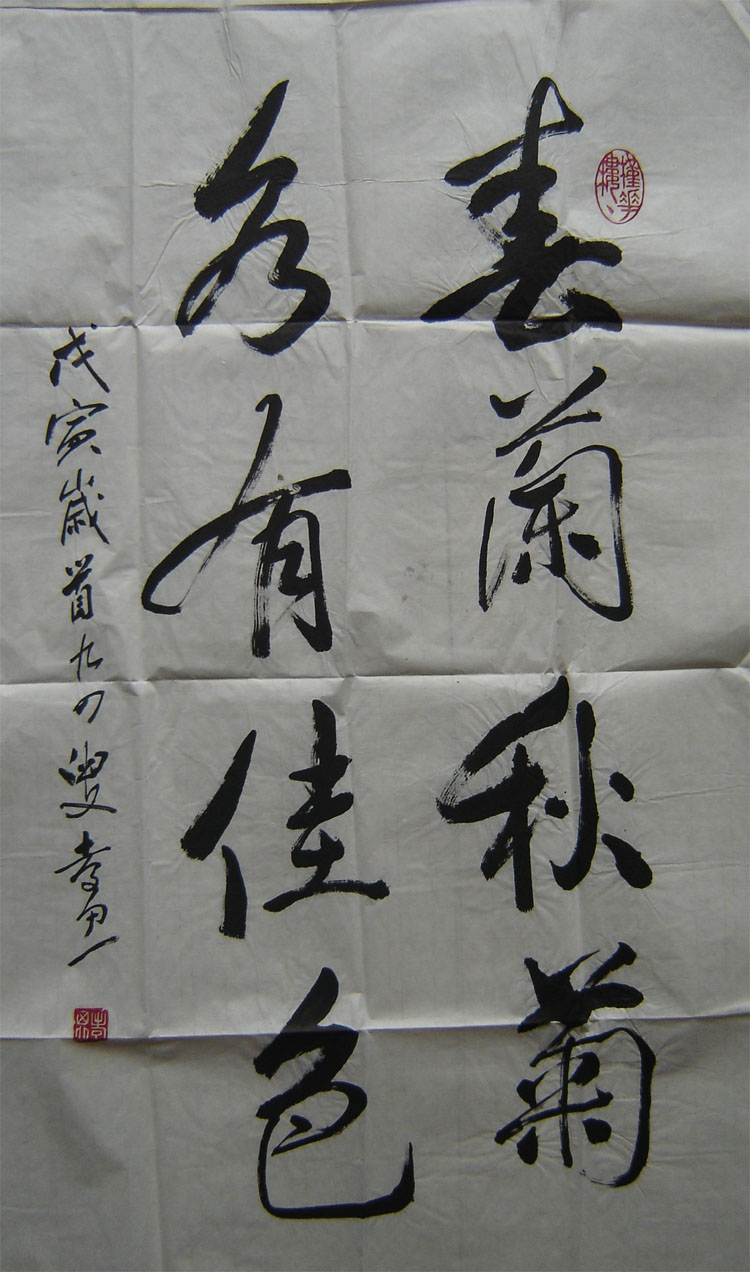 春蘭秋菊
各有佳色
戊寅歲首九四叟